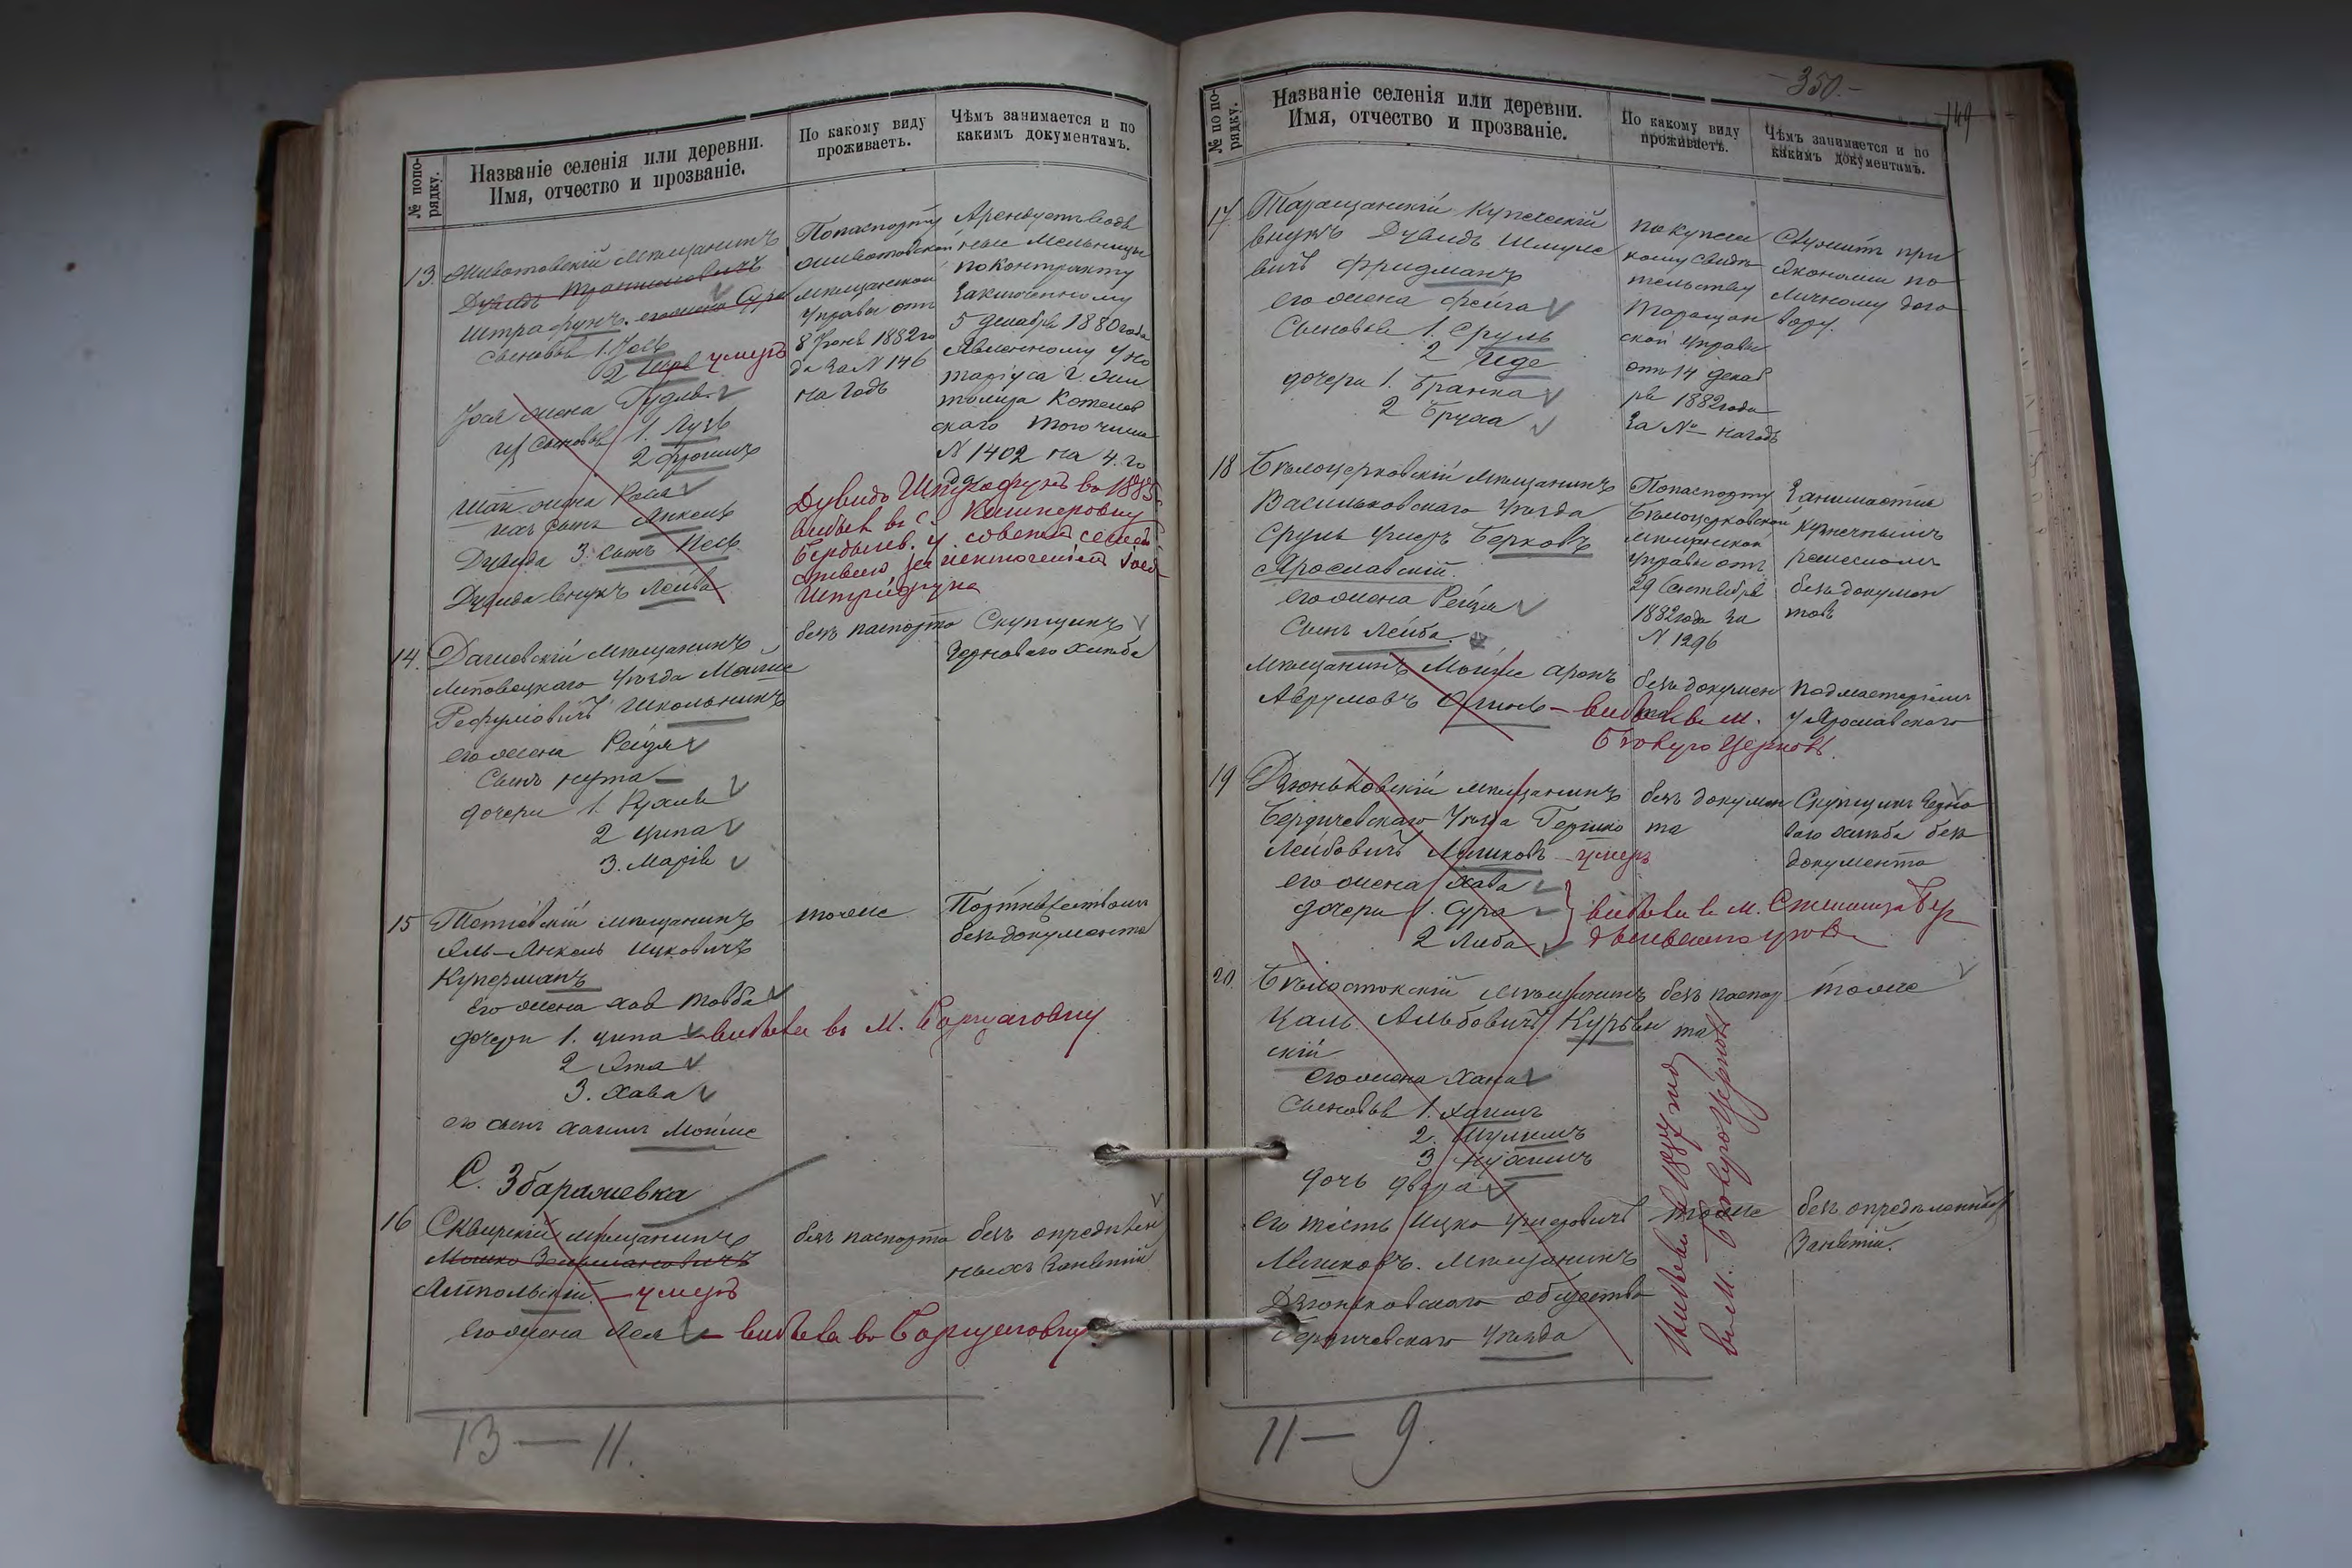 № попо-
рядку.
Названіе селенія или деревни.
Имя, отчество и прозваніе.
По какому виду
проживаетъ.
Чѣмъ занимается и по
какимъ документамъ.
13. Животовскій мѣщанинъ
Дувидъ
Штрафунъ. его жена Сура
Сыновья 1. Йось
2 умеръ
Йося жена Гудля
их Сыновья 1. Лузь
2 Фроимъ
жена Рося
ихъ сынъ Янкель
Дувида 3. сынъ Песъ
Дувида внукъ Лейва
По паспорту
Животовской
мѣщанской
Управы отъ
8 Юня 1882 го
да за N 146
на годъ
Арендуетъ водя
ные мельницы
по контракту
заключенному
5 декабря 1880 года
явленному у но
таріуса г. Жи
томира Котелов
скаго того числа
N 1402 на 4. го
да
Дувидъ Штрафунъ въ 1885 г
выбылъ въ с.
Бердычев. у. со всемъ семей
ствомъ за исключеніемъ Йося
Штрафуна
14. Дашовскій мѣщанинъ
Липовецкаго Уѣзда Мойше
Рефуловичъ Школьникъ
его жена Рейзя
Сынъ Нута
дочери 1. Рухля
2 Ципа
3. Марія
безъ паспорта
Скупщикъ
зерноваго хлѣба
15 Тетіевскій мѣщанинъ
Эль-Янкель Ицковичъ
Куперманъ
Его жена Хая Товба
дочери 1. Ципа – выбыли въ М. Борщаговку
2 Эта
3. Хава
его сынъ Хаимъ Мойше
тоже
Портняжествомъ
безъ документа
С. Збаражевка
16 Сквирскій мѣщанинъ
Мошко Зельмановичъ
Ямпольскій. – умеръ
его жена Лея – выбыла въ Борщаговку
безъ паспорта
безъ опредѣлен
ныхъ занятій
13 — 11.
350.-
149
№ по по-
рядку.
Названіе селенія или деревни.
Имя, отчество и прозваніе.
По какому виду
проживаетъ.
Чѣмъ занимается и по
какимъ документамъ.
17 Таращанскій Купеческій
внукъ Дувидъ Шмуле
вичъ Фридманъ
его жена Фейга
Сыновья 1. Сруль
2 Иде
дочери 1. Бранка
2 Бруха
по купече
скому свидѣ
тельству
Таращан
ской Управы
отъ 14 декаб
ря 1882 года
за № на годъ
Служитъ при
Экономіи по
личному дого
вору.
18 Бѣлоцерковскій мѣщанинъ
Васильковскаго Уѣзда
Сруль Ушеръ Берковъ
Ярославскій.
его жена Рейзя
Сынъ Лейба.
По паспорту
Бѣлоцерковской
мѣщанской
Управы отъ
29 Сентября
1882 года за
N 1296
Занимается
Кузнечнымъ
ремесломъ
безъ докумен
товъ
Мѣщанинъ Мойше Аронъ
Аврумовъ – выбылъ в М.
Бѣлую Церковь.
безъ докумен
Подмастерьемъ
у Ярославскаго
19 Дзюньковскій мѣщанинъ
Бердичевскаго Уѣзда Гершко
Лейбовичъ Мошковъ – умеръ
его жена Хава
дочери 1. Сура
2 Либа
выбыли в М.
безъ докумен
та
Скупщикъ зерно
ваго хлѣба безъ
документа
20. Бѣлостокскій мѣщанинъ
Цаль Альбовичъ
скій
его жена Хана
Сыновья 1. Хаимъ
2. Шулимъ
3 Нухимъ
дочь Двера
его тесть Ицко Ушеровичъ
Мошковъ. Мѣщанинъ
Дзюньковскаго общества
Бердичевскаго Уѣзда
безъ паспор
та
тоже
тоже
безъ опредѣленныхъ
занятій.
выбыли в 1887 году
въ М. Бѣлую Церковь
11 — 9.